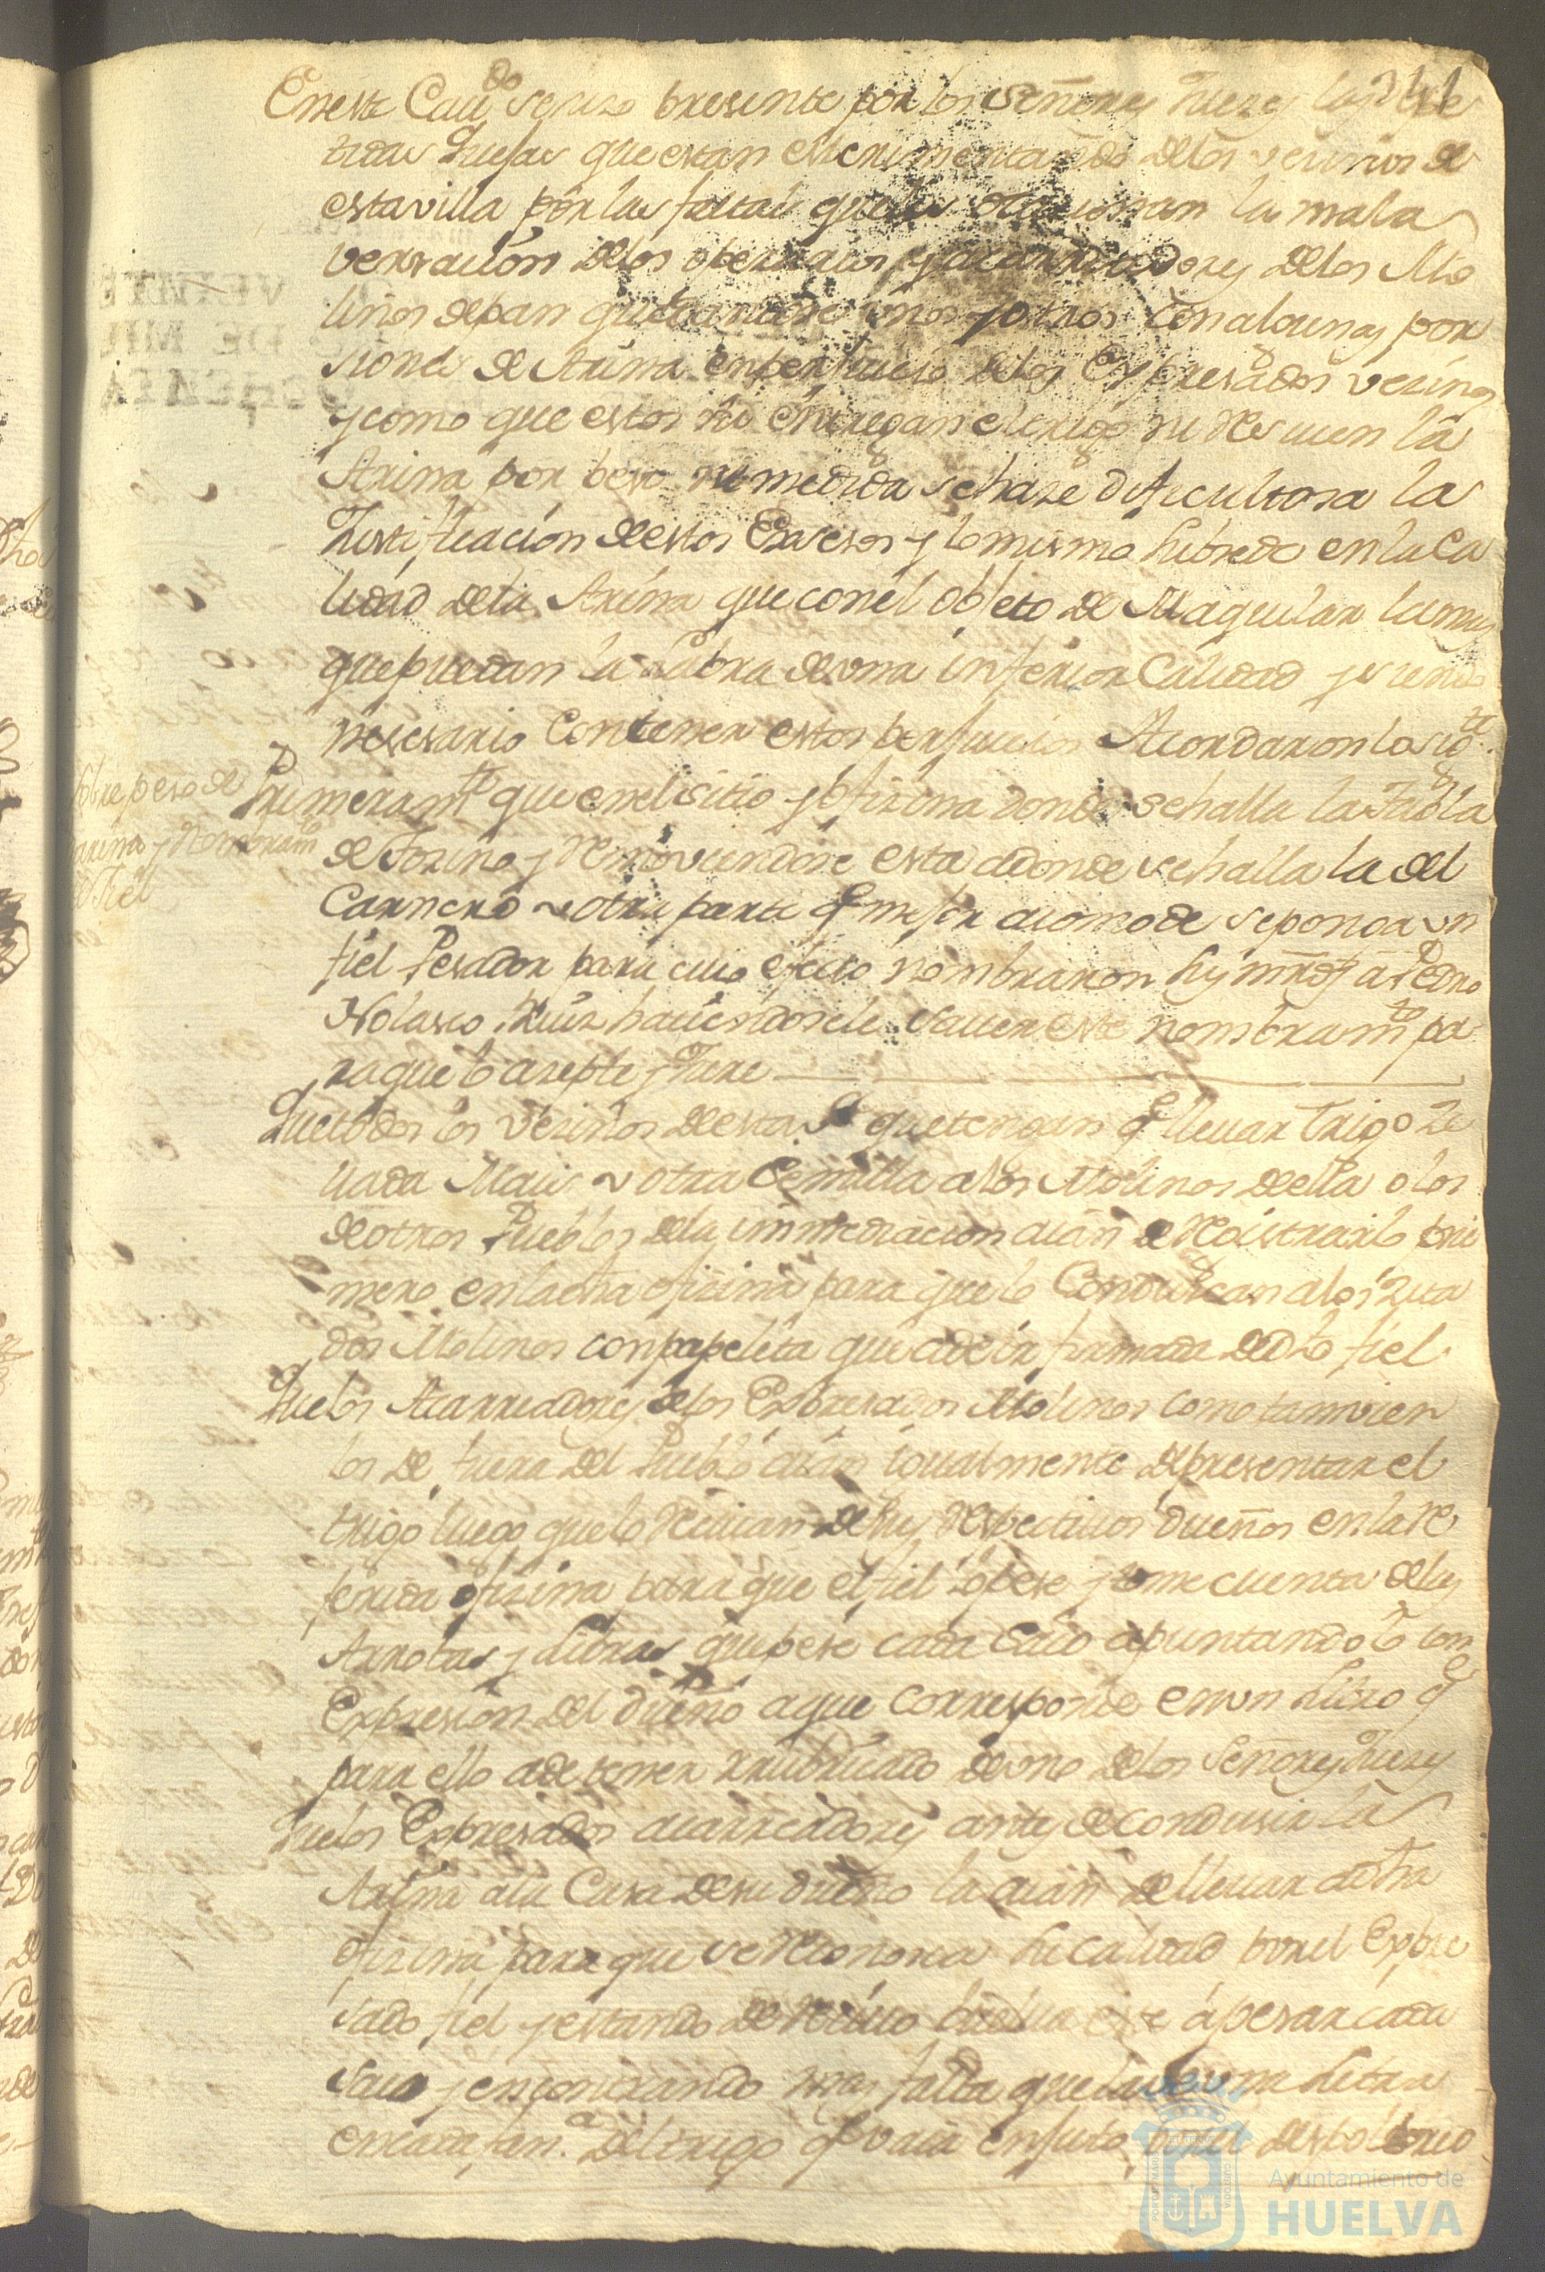 341
En este Cav.do se hizo presente por los Señores Juezes las repe
tidas Quejas que estan esperimentando de los vecinos de
esta villa por las faltas que les ocacionan la mala
versacion de los operarios y acarreadores de los Mo
linos de pan quedandose unos y otros con algunas por
siones de Arina en perjuicio de los Expresados vezinos
y como que estos ni entregan el trigo ni resiven la
Arina por peso ni medida se haze dificultosa la
Justificacion de estos Exsesos y lo mismo susede en la Ca
lidad de la Arina que con el objeto de Maquilar lo mas
que puedan la labra de una inferior Calidad y siendo
nesesario Contener estos perjuicios Acordaron lo sig.te
Primeram.te que en el sitio y ofizina donde se halla la Tabla
de Tozino y Removiendose esta a donde se halla la del
Carnero u otra parte q mejor acomode se ponga un
fiel Pesador para cuio efecto nombraron sus mrds a Pedro
Nolasco Ruiz haciendosele saver este nombram.to pa
ra que lo asepte y Jure
Que todos los vezinos de esta V.a que tengan q llevar Trigo Ze
vada Mais u otra Semilla a los Molinos de ella o los
de otros Pueblos de la inmediacion aian de Registrarlo pri
mero en la dha ofizina para que lo Conduzcan a los zita
dos Molinos con papeleta que a de ir firmada de dho fiel
Que los Acarreadores de los Expresados Molinos como tamvien
los de fuera del Pueblo aian igualmente de presentar el
trigo luego que lo Resivan de sus Respectivos dueños en la re
ferida ofizina para que el fiel lo pese y tome cuenta de las
Arrobas y Libras que pese cada Saco apuntandolo con
Expresion del dueño a que corresponde en un Libro q
para ello a de tener rubricado de uno de los Señores Juezes
Que los Expresados acarreadores antes de condusir la
Arina a la Casa de su dueño la aian de llevar a dha
ofizina para que se Reconosca su calidad por el Expre
sado fiel y estando de Recivo buelva este a pesar cada
Saco y encontrando mas falta que la de una Libra
en cada fan.a del trigo q vaia enjuto
Sobre peso de
harina y Nombram.to
de Fiel
Ayuntamiento de
HUELVA